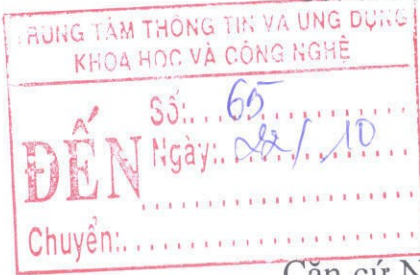 TRUNG TÂM THÔNG TIN VÀ ỨNG DỤNG
KHOA HỌC VÀ CÔNG NGHỆ
ĐẾN
Số:...65...
Ngày:...22/10
Chuyển:...
Căn cứ N